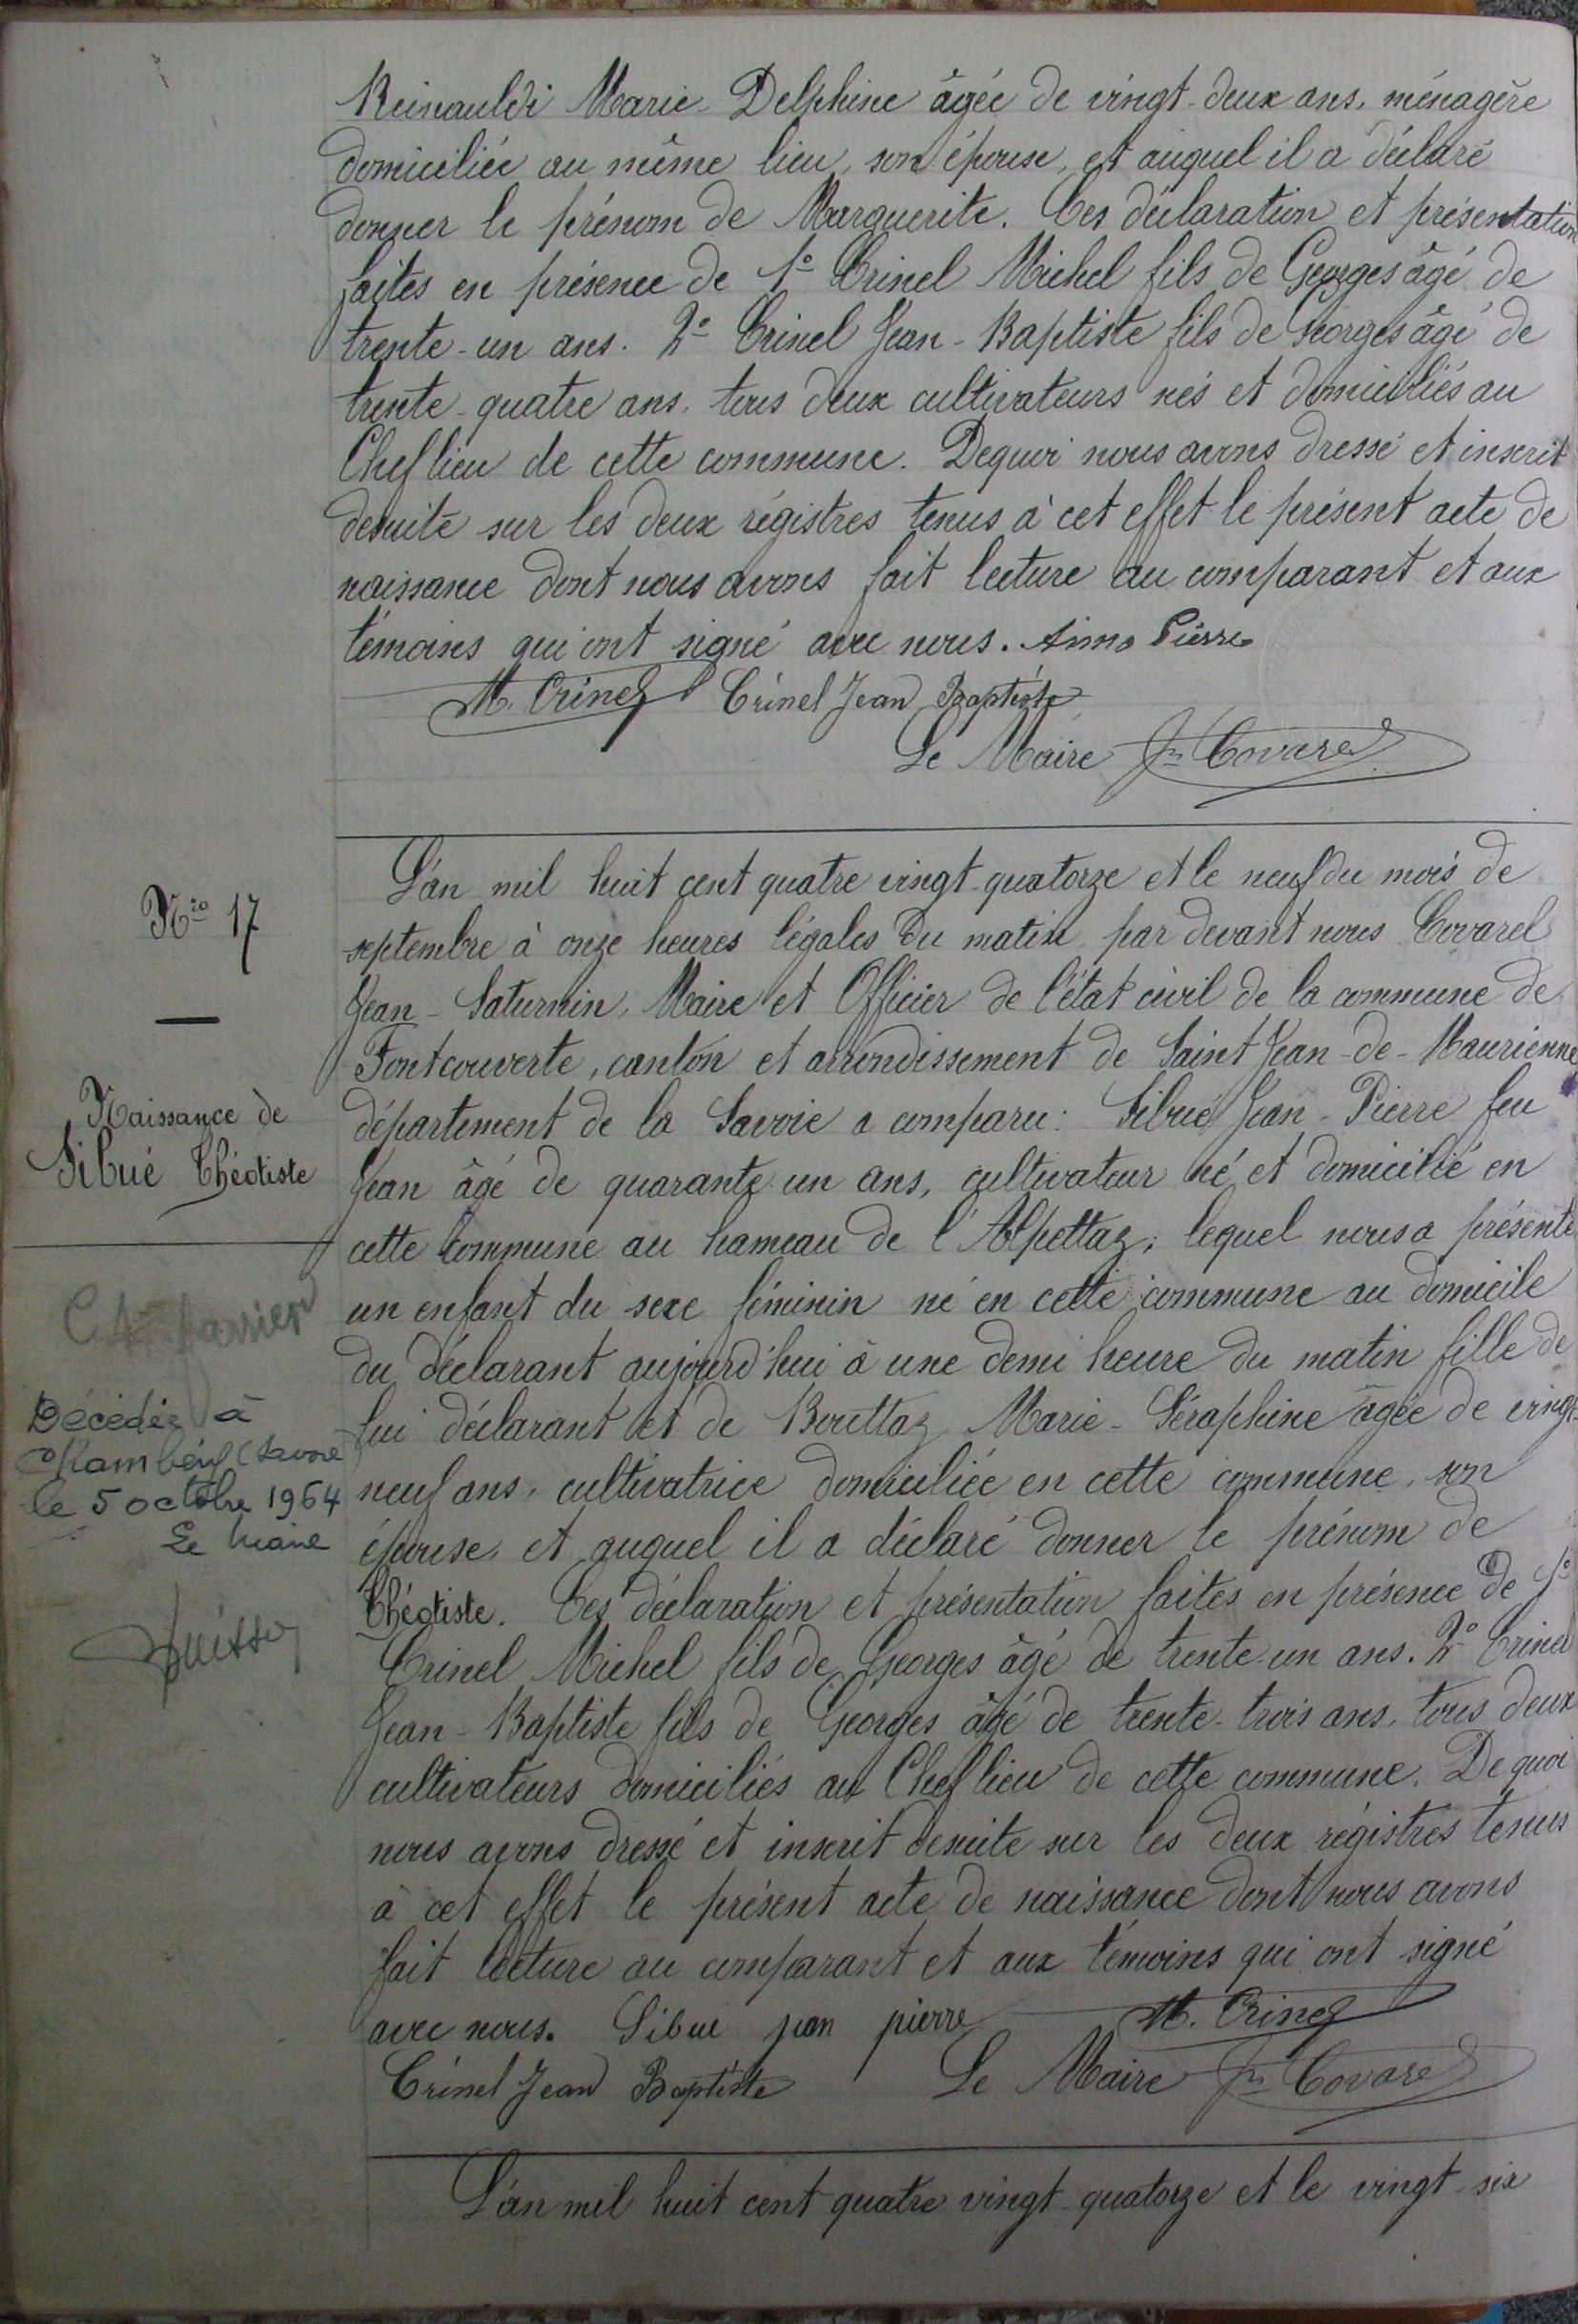 Reinauldi Marie-Delphine âgée de vingt-deux ans, ménagère
domiciliée au même lieu, son épouse, et auquel il a déclaré
donner le prénom de Marguerite. Ces déclaration et présentation
faites en présence de 1° Crinel Michel fils de Georges âgé de
trente-un ans. 2° Crinel Jean-Baptiste fils de Georges âgé de
trente-quatre ans, tous deux cultivateurs nés et domiciliés au
Cheflieu de cette commune. Dequoi nous avons dressé et inscrit
desuite sur les deux régistres tenus à cet effet le présent acte de
naissance dont nous avons fait lecture au comparant et aux
témoins qui ont signé avec nous. Pierre
M. Crinel Crinel Jean Baptiste
Le Maire Jn Covarel
Nro 17
Naissance de
Sibué Théotiste
L'an mil huit cent quatre vingt-quatorze et le neuf du mois de
septembre à onze heures légales du matin par devant nous Covarel
Jean-Saturnin, Maire et Officier de l'état civil de la commune de
Fontcouverte, canton et arrondissement de Saint Jean-de-Maurienne
département de la Savoie a comparu: Sibué Jean-Pierre feu
Jean âgé de quarante un ans, cultivateur né et domicilié en
cette commune au hameau de l'Alpettaz, lequel nous a présenté
un enfant du sexe féminin né en cette commune au domicile
du déclarant aujourd'hui à une demi heure du matin fille de
lui déclarant et de Bouttaz Marie-Séraphine âgée de vingt-
neuf ans, cultivatrice domiciliée en cette commune, son
épouse, et auquel il a déclaré donner le prénom de
Théotiste. Ces déclaration et présentation faites en présence de 1°
Crinel Michel fils de Georges âgé de trente-un ans. 2° Crinel
Jean-Baptiste fils de Georges âgé de trente-trois ans, tous deux
cultivateurs domiciliés au Cheflieu de cette commune. De quoi
nous avons dressé et inscrit desuite sur les deux régistres tenus
à cet effet le présent acte de naissance dont nous avons
fait lecture au comparant et aux témoins qui ont signé
avec nous. Sibué jean pierre M. Crinel
Crinel Jean Baptiste Le Maire Jn Covarel
Décédée à
Chambéry (Savoie
le 5 octobre 1964
Le Maire
L'an mil huit cent quatre vingt-quatorze et le vingt-six